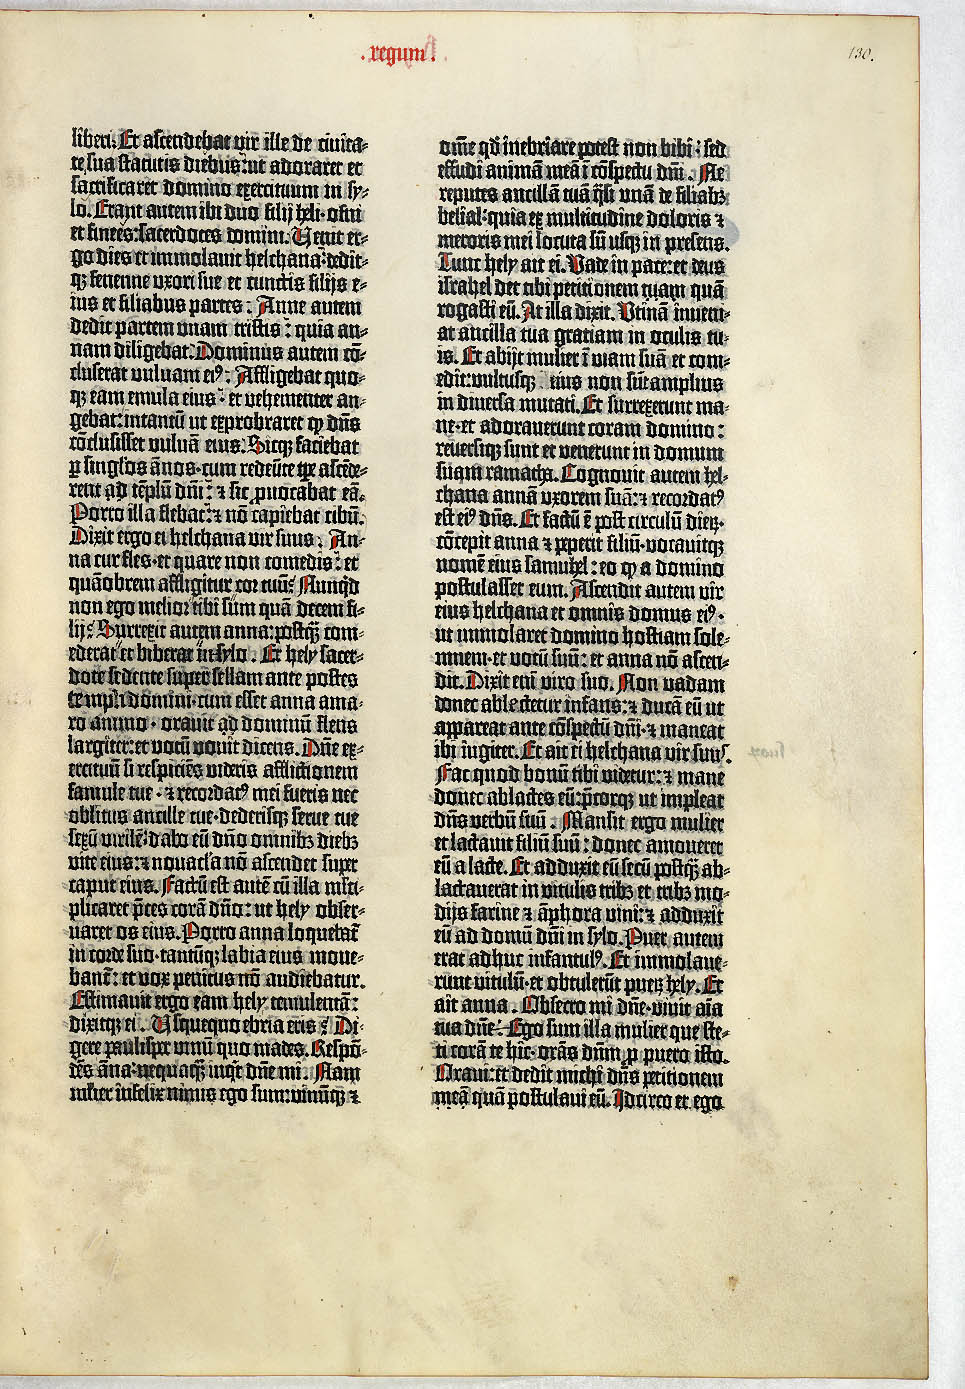 .regum.
130.
liberi. Et ascendebat vir ille de civita-
te sua statutis diebus: ut adoraret et
sacrificaret domino exercituum in sy-
lo. Erant autem ibi duo filij heli· ofni
et finees: sacerdotes domini. Venit er-
go dies et immolavit helchana: dedit-
qꝫ fenenne uxori sue et cunctis filijs e-
ius et filiabus partes: Anne autem
dedit partem unam tristis: quia an-
nam diligebat. Dominus autem cō-
cluserat vulvam eiꝰ: Affligebat quo-
qꝫ eam emula eius· et vehementer an-
gebat: intantū ut exprobraret ꝙ dn̄s
cōclusisset vulvā eius. Sicqꝫ faciebat
ꝑ singl'os ānos· cum redeūte tꝑe ascēde-
rent ad tēplū dn̄i: ⁊ sic ꝓvocabat eā.
Porro illa flebat: ⁊ nō capiebat cibū.
Dixit ergo ei helchana vir suus. An-
na cur fles· et quare non comedis: et
quāobrem affligitur cor tuū? Nunqͥd
non ego melior tibi sum quā decem fi-
lij? Surrexit autem anna: postqꝫ̄ com-
ederat et biberat in sylo. Et hely sacer-
dote sedente super sellam ante postes
templi domini· cum esset anna ama-
ro animo· oravit ad dominū flens
largiter: et votū vovit dicens. Dn̄e ex-
ercituū si respiciēs videris afflictionem
famule tue· ⁊ recordatꝰ mei fueris nec
oblitus ancille tue· dederisqꝫ serve tue
sexū virilē: dabo eū dn̄o omnibꝫ diebꝫ
vite eius: ⁊ novacl'a nō ascendet super
caput eius. Factū est autē cū illa ml'ti-
plicaret p̄ces corā dn̄o: ut hely obser-
varet os eius. Porro anna loquebat̄
in corde suo· tantūqꝫ labia eius move-
bant̄: et vox penitus nō audiebatur.
Estimavit ergo eam hely temulentā:
dixitqꝫ ei. Usquequo ebria eris? Di-
gere paulisꝑ vinū quo mades. Respō-
dēs āna: nequaqꝫ̄ inqͥt dn̄e mi. Nam
mulier infelix nimis ego sum: vinūqꝫ ⁊
om̄e qd̄ inebriare potest non bibi: sed
effudi animā meā ī cōspectu dn̄i. Ne
reputes ancillā tuā qͣsi unā de filiabꝫ
belial: quia ex multitudine doloris ⁊
meroris mei locuta sū usqꝫ in presens.
Tunc hely ait ei. Vade in pace: et deus
israhel det tibi petitionem tuam quā
rogasti eū. At illa dixit. Utinā inveni-
at ancilla tua gratiam in oculis tu-
is. Et abijt mulier ī viam suā et com-
edit: vultusqꝫ eius non sūt amplius
in diversa mutati. Et surrexerunt ma-
ne· et adoraverunt coram domino:
reversiqꝫ sunt et venerunt in domum
suam ramatha. Cognovit autem hel-
chana annā uxorem suā: ⁊ recordatꝰ
est eiꝰ dn̄s. Et factū ē post circulū dieꝝ·
cōcepit anna ⁊ peperit filiū· vocavitqꝫ
nomē eius samuhel: eo ꝙ a domino
postulasset eum. Ascendit autem vir
eius helchana et omnis domus eiꝰ·
ut immolaret domino hostiam sole-
mnem· et votū suū: et anna nō ascen-
dit. Dixit eni viro suo. Non vadam
donec ablactetur infans: ⁊ ducā eū ut
appareat ante cōspectū dn̄i· ⁊ maneat
ibi iugiter. Et ait ei helchana vir suus.
Fac quod bonū tibi videtur: ⁊ mane
donec ablactes eū: p̄corqꝫ ut impleat
dn̄s verbū suū. Mansit ergo mulier
et lactavit filiū suū: donec amoveret
eū a lacte. Et adduxit eū secū postqꝫ̄ ab-
lactaverat in vitulis tribꝫ et tribꝫ mo-
dijs farine ⁊ āphora vini: ⁊ adduxit
eū ad domū dn̄i in sylo. Puer autem
erat adhuc infantulꝰ. Et immolave-
runt vitulū· et obtulerūt pueꝝ hely. Et
ait anna. Obsecro mi dn̄e· vivit aīa
tua dn̄e· Ego sum illa mulier que ste-
ti corā te hic· orās dn̄m ꝓ puero isto.
Oravi: et dedit michi dn̄s petitionem
meā quā postulavi eū. Idcirco et ego